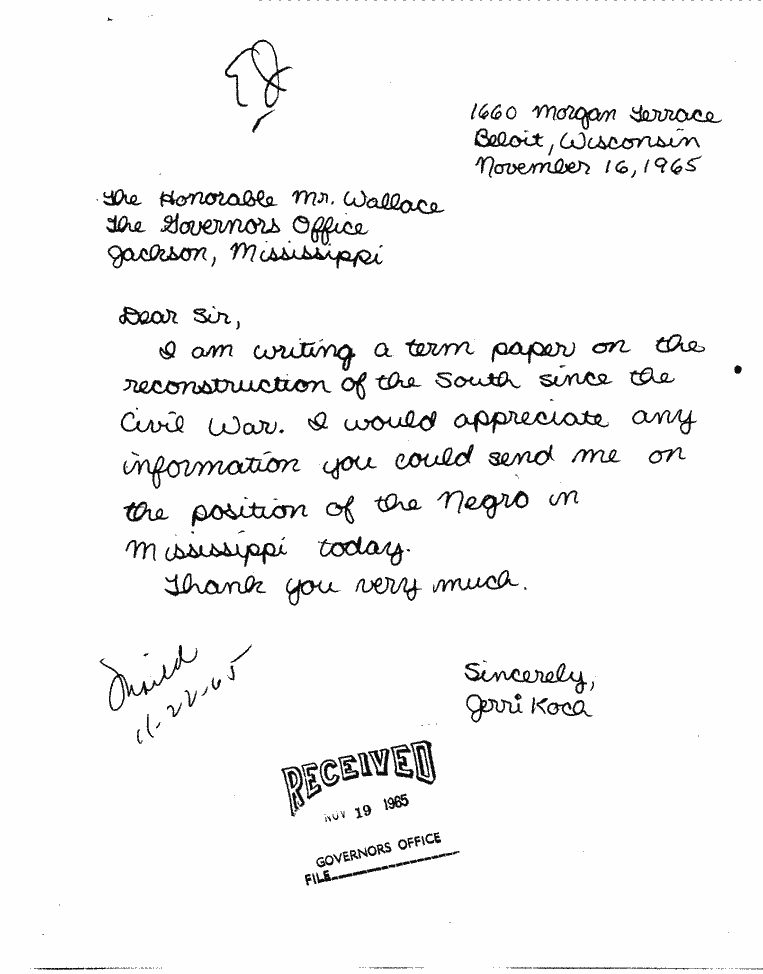 1660 Morgan Terrace
Beloit, Wisconsin
November 16, 1965
The Honorable Mr. Wallace
The Governors Office
Jackson, Mississippi
Dear Sir,
I am writing a term paper on the
reconstruction of the South since the
Civil War. I would appreciate any
information you could send me on
the position of the Negro in
Mississippi today.
Thank you very much.
Sincerely,
Jerri Koca
11-22-65
RECEIVED
NOV 19 1965
GOVERNORS OFFICE
FILE